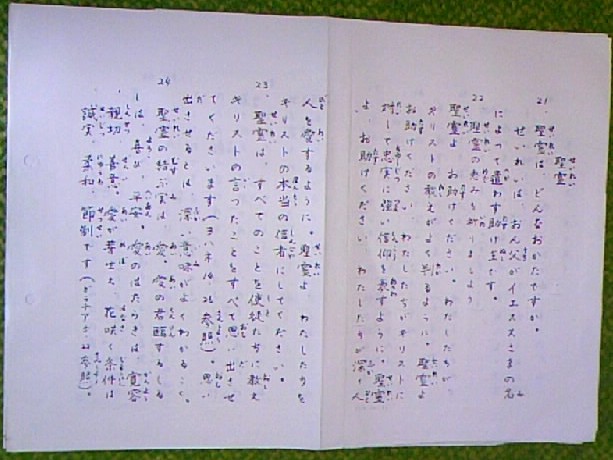 聖霊
21. 聖霊は、どんなおかたですか。
せいれいは、おん父がイエスさまの名
によって遣わす助け主です。
22 聖霊の恵みを祈りましょう
聖霊よ お助けください。わたしたちが
キリストの教えがよく判るように。聖霊よ
お助けください、わたしたちがキリストに
対して忠実に強い信仰を表すように。聖霊
よ、お助けください。わたしたちが深く人
人を愛するように。聖霊よ わたしたちを
キリストの本当の信者にしてください。
23. 聖霊は、すべてのことを使徒たちに教え
キリストの言ったことをすべて思い出させ
てくださいます(ヨハネ 26参照)。思い
出させるとは、深い意味がよくわかること。
24 聖霊の結ぶ実は、愛の君臨するしる
しは、喜び、平安。愛のはたらきは、寛容
、親切、善意。愛が芽 、花咲く条件は
誠実、柔和、節制です( 参照)。